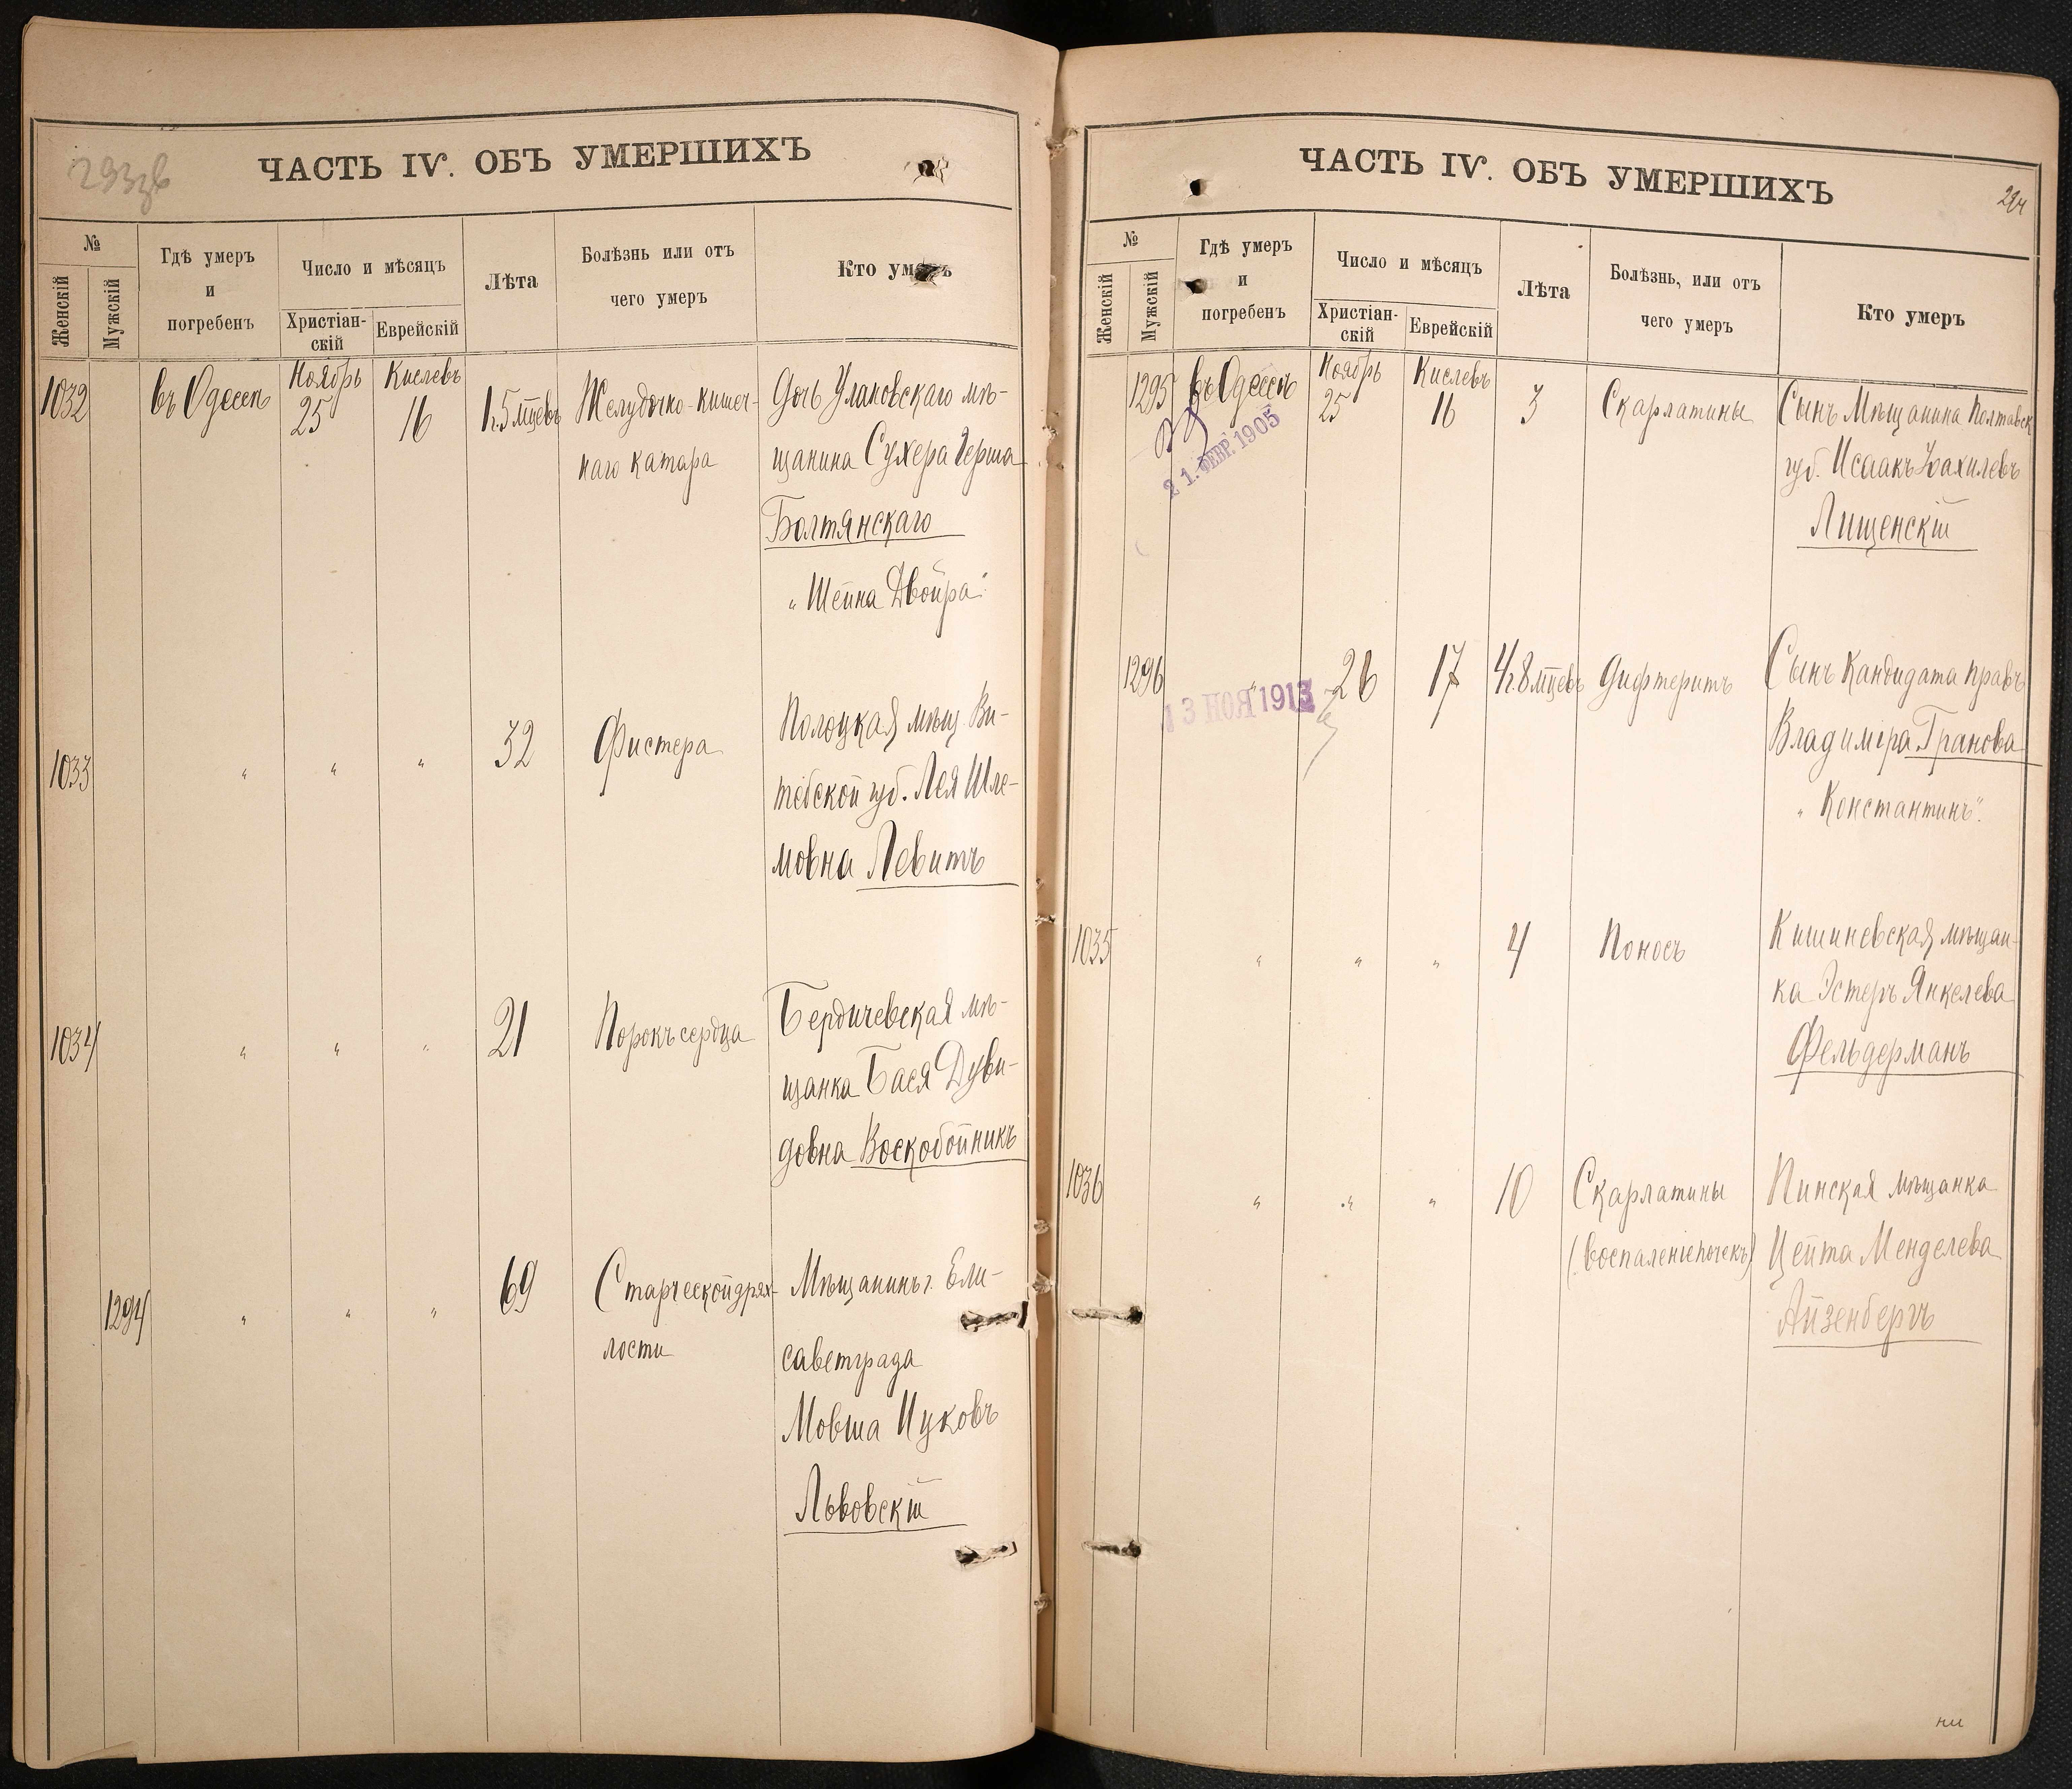 293об
ЧАСТЬ IV. ОБЪ УМЕРШИХЪ
№
Женскій
Мужскій
Гдѣ умеръ
и
погребенъ
Число и мѣсяцъ
Христіан-
скій
Еврейскій
Лѣта
Болѣзнь или отъ
чего умеръ
Кто умеръ
1032
въ Одессѣ
Ноябрь
25
Кислевъ
16
1г.5 мцевъ
Желудочно-кишеч-
наго катара
Дочь Улановскаго мѣ-
щанина Сухера Герша
Болтянскаго
„Шейна Двойра"
1033
"
"
"
32
Фистера
Полоцкая мѣщ. Ви-
тебской губ. Лея Шле-
мовна Левитъ
1034
"
"
"
21
Порокъ сердца
Бердичевская мѣ-
щанка Бася Дуви-
довна Воскобойникъ
1294
"
"
"
69
Старческой дрях-
лости
Мѣщанинъ г. Ели-
саветграда
Мовша Ицковъ
Львовскій
ЧАСТЬ IV. ОБЪ УМЕРШИХЪ
294
№
Женскій
Мужскій
Гдѣ умеръ
и
погребенъ
Число и мѣсяцъ
Христіан-
скій
Еврейскій
Лѣта
Болѣзнь, или отъ
чего умеръ
Кто умеръ
1295
въ Одессѣ
21. ФЕВР. 1905
Ноябрь
25
Кислевъ
16
3
Скарлатины
Сынъ Мѣщанина Полтавск
губ. Исаакъ
Лищенскій
1296
"
13 НОЯ 1913
26
17
4г.8 мцевъ
Дифтеритъ
Сынъ Кандидата правъ
Владиміра Гранова
„Константинъ".
1035
"
"
"
4
Поносъ
Кишиневская мѣщан-
ка Эстеръ Янкелева
Фельдерманъ
1036
"
"
"
10
Скарлатины
(воспаленіе почекъ)
Пинская мѣщанка
Цейта Менделева
Айзенбергъ